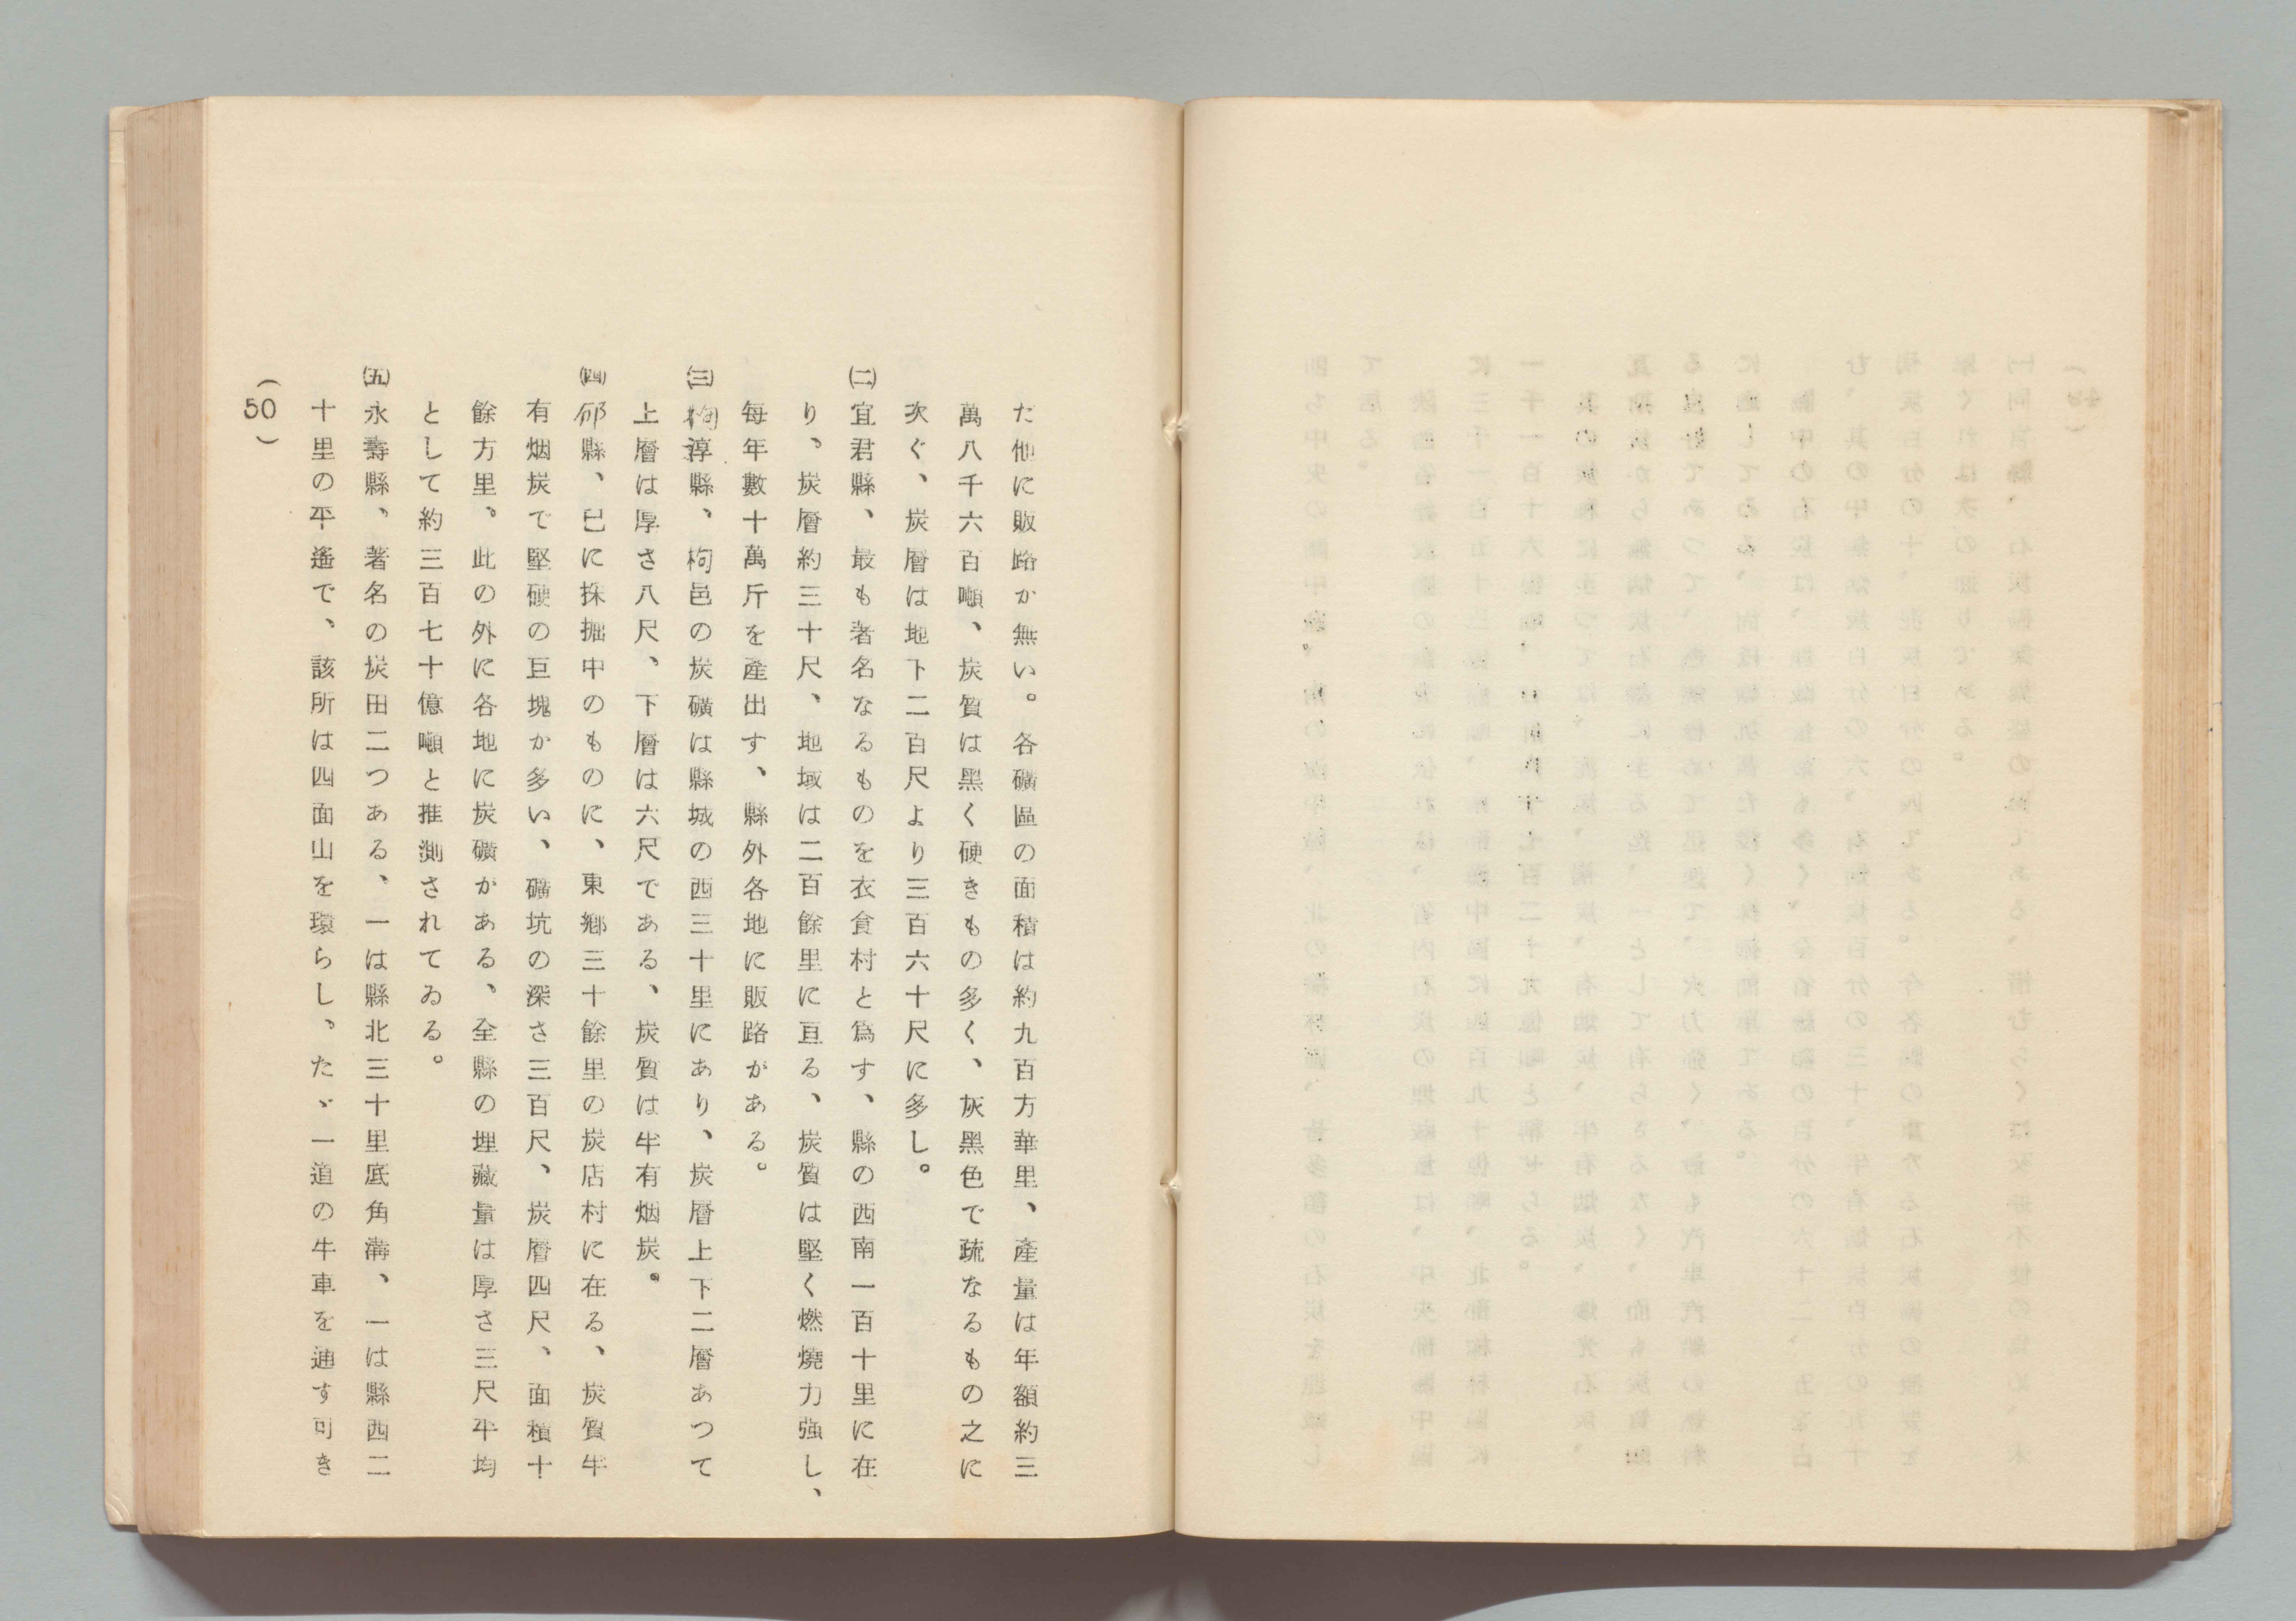 た他に販路か無い。各礦區の面積は約九百方華里、產量は年額約三
萬八千六百噸、炭質は黑く硬きもの多く、灰黑色で疏なるもの之に
次ぐ、炭層は地下二百尺より三百六十尺に多し。
㈡宜君縣、最も著名なるものを衣食村と爲す、縣の西南一百十里に在
り、炭層約三十尺、地域は二百餘里に亘る、炭質は堅く燃燒力強し、
每年數十萬斤を產出す、縣外各地に販路がある。
㈢栒淳縣、栒邑の炭礦は縣城の西三十里にあり、炭層上下二層あつて
上層は厚さ八尺、下層は六尺である、炭質は半有烟炭。
㈣邠縣、已に採掘中のものに、東鄉三十餘里の炭店村に在る、炭質半
有烟炭で堅硬の巨塊か多い、礦坑の深さ三百尺、炭層四尺、面積十
餘方里。此の外に各地に炭礦がある、全縣の埋藏量は厚さ三尺平均
として約三百七十億噸と推測されてゐる。
㈤永壽縣、著名の炭田二つある、一は縣北三十里底角溝、一は縣西二
十里の平遙で、該所は四面山を環らし、たゞ一道の牛車を通す可き
(50)